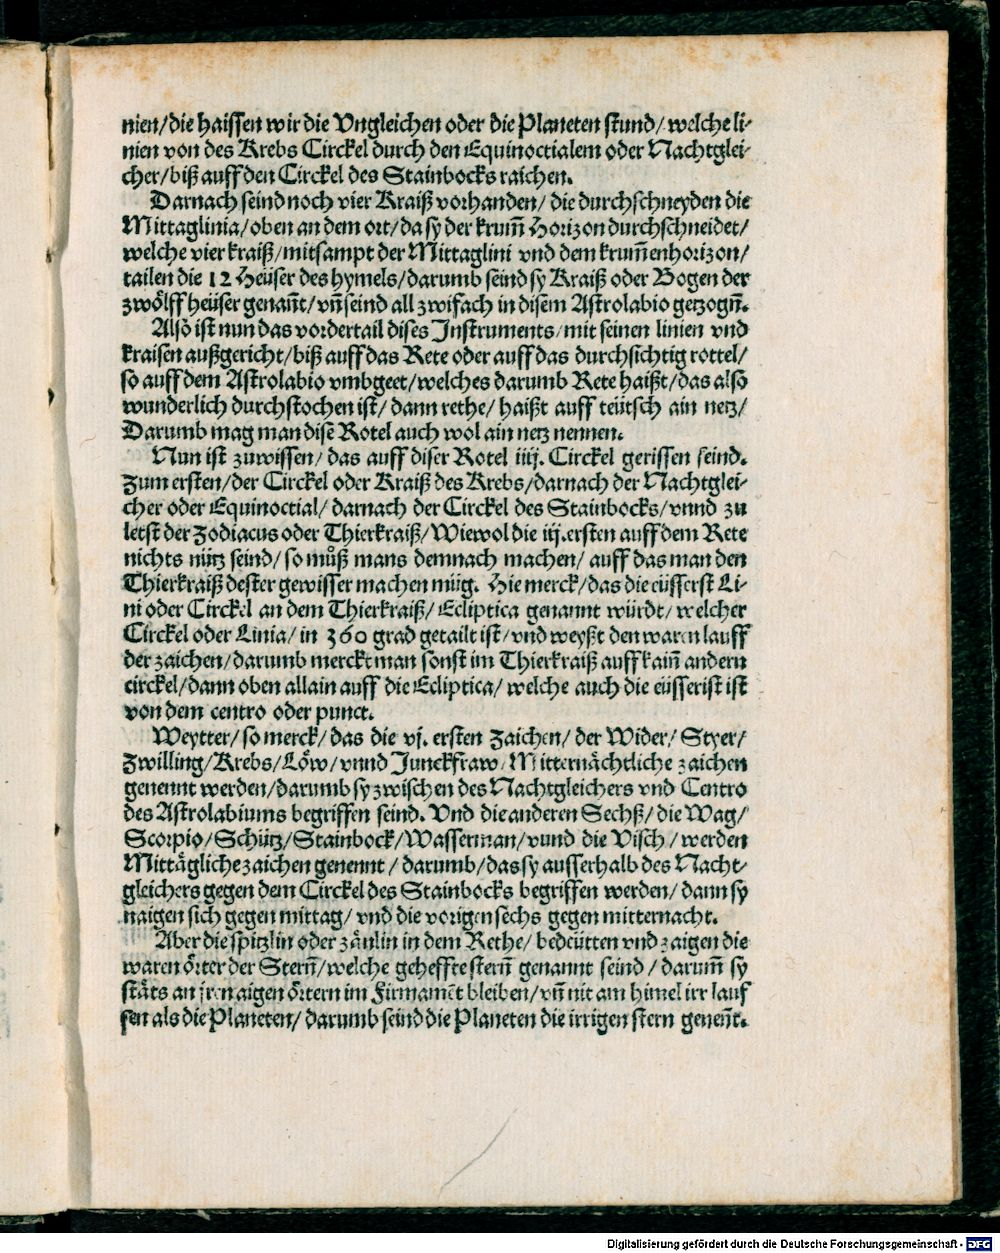 nien/die haissen wir die Vngleichen oder die Planeten stund/welche li-
nien von des Krebs Circkel durch den Equinoctialem oder Nachtglei-
cher/biß auff den Circkel des Stainbocks raichen.
Darnach seind noch vier Kraiß vorhanden/ die durchschneyden die
Mittaglinia/oben an dem ort/da sy der krum̄ Horizon durchschneidet/
welche vier kraiß/mitsampt der Mittaglini vnd dem krum̄enhorizon/
tailen die 12 Heüser des hymels/darumb seind sy Kraiß oder Bogen der
zwölff heüser genañt/vn̄ seind all zwifach in disem Astrolabio gezogn̄.
Also ist nun das vordertail dises Instruments/mit seinen linien vnd
kraisen außgericht/biß auff das Rete oder auff das durchsichtig rottel/
so auff dem Astrolabio vmbgeet/welches darumb Rete haißt/das also
wunderlich durchstochen ist/ dann rethe/ haißt auff teütsch ain netz/
Darumb mag man dise Rotel auch wol ain netz nennen.
Nun ist zuwissen/ das auff diser Rotel iiij. Circkel gerissen seind.
Zum ersten/der Circkel oder Kraiß des Krebs/darnach der Nachtglei-
cher oder Equinoctial/ darnach der Circkel des Stainbocks/vnnd zu
letst der Zodiacus oder Thierkraiß/Wiewol die iij.ersten auff dem Rete
nichts nütz seind/ so můß mans demnach machen/ auff das man den
Thierkraiß dester gewisser machen müg. Hie merck/das die eüsserst Li-
ni oder Circkel an dem Thierkraiß/ Ecliptica genannt würdt/ welcher
Circkel oder Linia/ in 360 grad getailt ist/vnd weyßt den waren lauff
der zaichen/darumb merckt man sonst im Thierkraiß auff kain̄ andern
circkel/dann oben allain auff die Ecliptica/ welche auch die eüsserist ist
von dem centro oder punct.
Weytter/ so merck/ das die vj. ersten Zaichen/ der Wider/ Styer/
Zwilling/Krebs/Löw/vnnd Junckfraw/Mitternächtliche zaichen
genennt werden/darumb sy zwischen des Nachtgleichers vnd Centro
des Astrolabiums begriffen seind. Vnd die anderen Sechß/ die Wag/
Scorpio/Schütz/Stainbock/Wasserman/vnnd die Visch/ werden
Mittägliche zaichen genennt/ darumb/das sy ausserhalb des Nacht-
gleichers gegen dem Circkel des Stainbocks begriffen werden/ dann sy
naigen sich gegen mittag/ vnd die vorigen sechs gegen mitternacht.
Aber die spitzlin oder zänlin in dem Rethe/ bedeütten vnd zaigen die
waren örter der Stern̄/welche geheffte stern̄ genannt seind/ darum̄ sy
stäts an jren aigen örtern im Firmamēt bleiben/vn̄ nit am himel irr lauf
fen als die Planeten/ darumb seind die Planeten die irrigen stern geneñt.
Digitalisierung gefördert durch die Deutsche Forschungsgemeinschaft - DFG